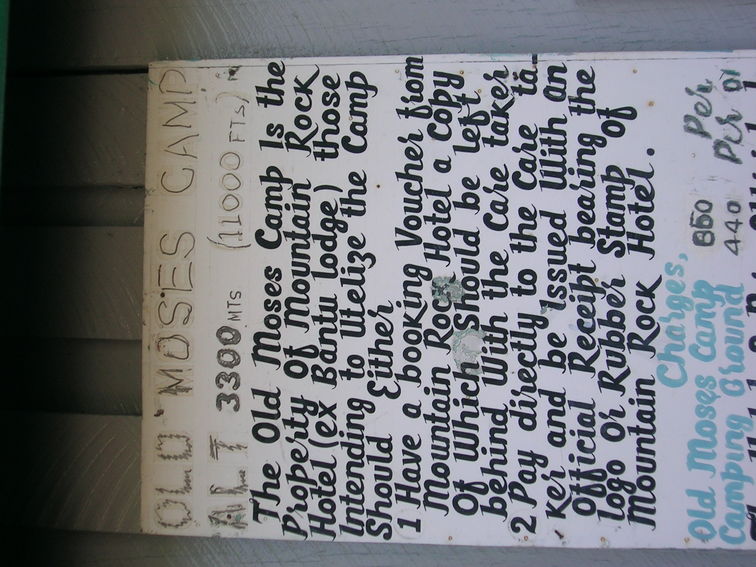 OLD MOSES CAMP
ALT 3300 MTS (11000 FTS)
The Old Moses Camp Is the
Property Of Mountain Rock
Hotel (ex Bantu lodge) those
Intending to Utelize the Camp
Should Either
1 Have a booking Voucher from
Mountain Rock Hotel a Copy
Of Which Should be left
behind With the Care taker
2 Pay directly to the Care ta
Ker and be Issued With an
Official Receipt bearing the
logo Or Rubber Stamp of
Mountain Rock Hotel.
Charges,
Old Moses Camp 850 Per
Camping Ground 440 Per